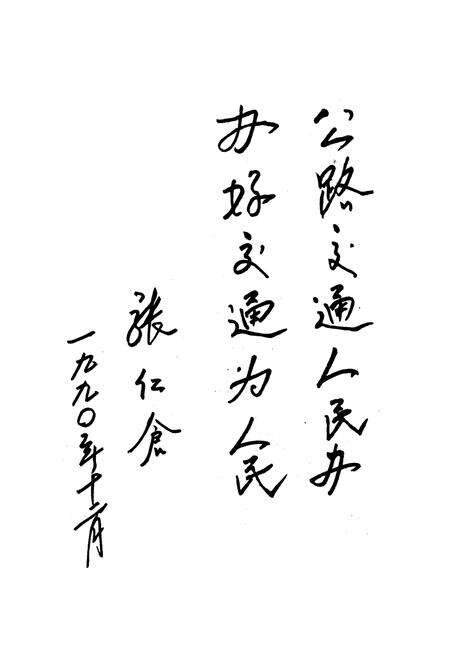 公路交通人民办
办好交通为人民
張仁倉
一九九〇年十二月